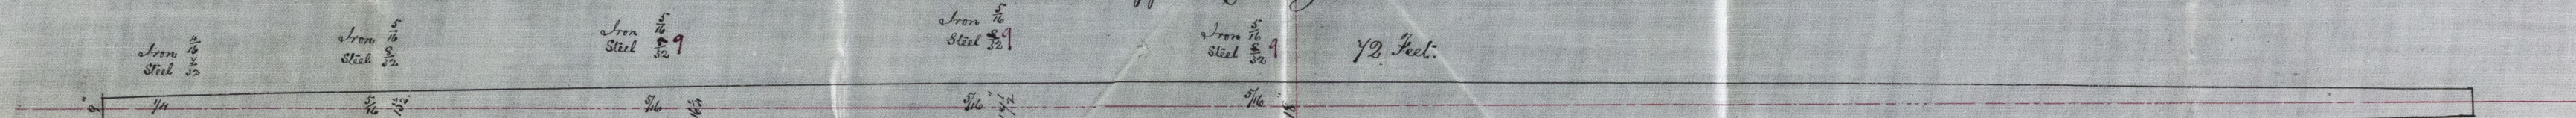 Iron 4/16
Steel 7/32
Iron 5/16
Steel 8/32
Iron 5/16
Steel 8/32 9
Iron 5/16
Steel 8/32 9
Iron 5/16
Steel 8/32 9
72 Feet.
9"
1/4
5/16
5/16
5/16
5/16
18